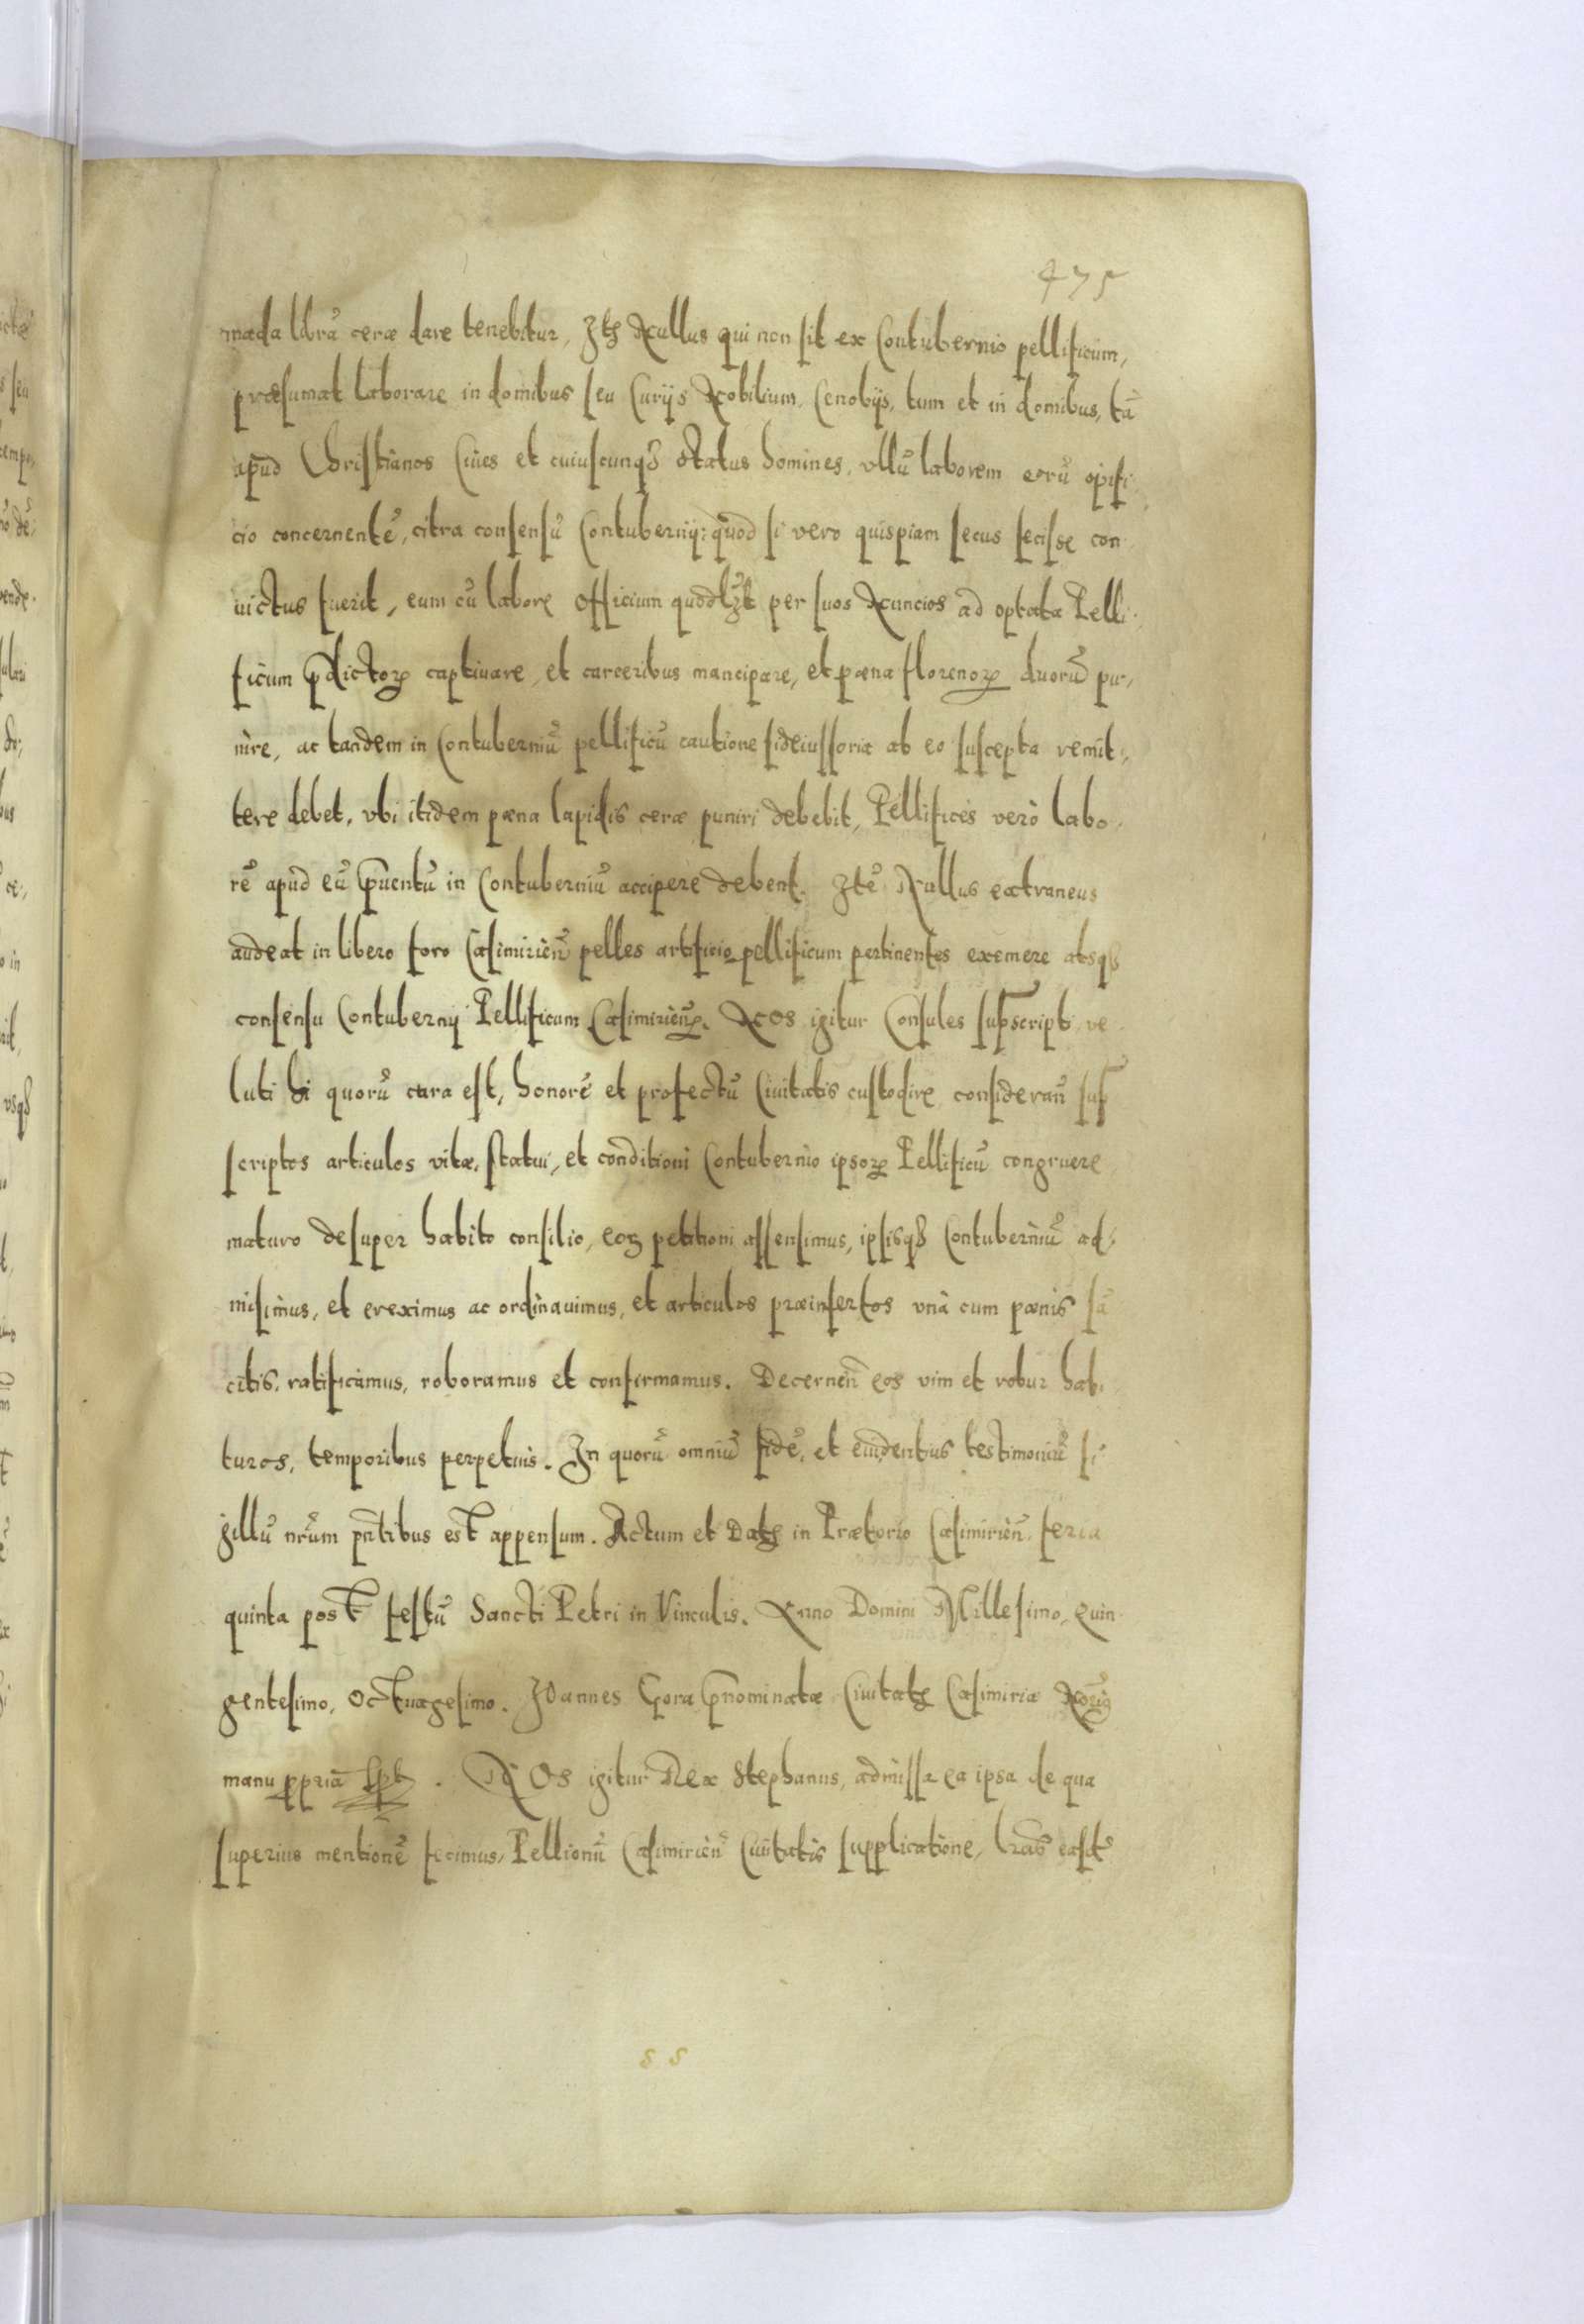 475
mada librã ceræ dare tenebitur, Itẽ Nullus qui non sit ex Contubernio pellificum,
præsumat laborare in domibus seu Curijs Nobilium, Cenobijs, tum et in domibus, tã
apud Christianos Ciues et cuiuscunqȝ status homines, vllũ laborem eorũ opifi
cio concernentẽ, citra consensũ Contubernij: quod si vero quispiam secus fecisse con
uictus fuerit, eum cũ labore officium quodlȝt per suos Nuncios ad optata Pelli
ficum p̃dictoꝝ captiuare, et carceribus mancipare, et pæna florenoꝝ duorũ pu,
nire, ac tandem in Contuberniũ pellificũ cautione fideiussoria ab eo suscepta remit,
tere debet, vbi itidem pæna lapidis ceræ puniri debebit, Pellifices verò labo,
rẽ apud eũ p̃uentũ in Contuberniũ accipere debent. Itẽ Nullus extraneus
audeat in libero foro Casimirieñ pelles artificio pellificum pertinentes exemere absqȝ
consensu Contubernij Pellificum Casimirienꝝ. Nos igitur Consules supscripti ve
luti hi quorũ cura est, honorẽ et profectũ Ciuitatis custodire, considerañ sup
scriptos articulos vitæ, statui, et conditioni Contubernio ipsoꝝ Pellificũ congruere
maturo desuper habito consilio, eoꝝ petitioni assensimus, ipsisqȝ Contuberniũ ad,
misimus, et ereximus ac ordinauimus, et articulos præinsertos vnà cum pænis sã
citis, ratificamus, roboramus et confirmamus. Decerneñ eos vim et robur habi
turos, temporibus perpetuis. In quorũ omniũ fidẽ, et euidentius testimoniũ si
gillũ nr̃um pñtibus est appensum. Actum et Datꝫ in Prætorio Casimirieñ feria
quinta post festũ Sancti Petri in Vinculis. Anno Domini Millesimo, quin
gentesimo, Octuagesimo. Joannes Gora p̃nominatæ Ciuitatꝫ Casimiriæ Norius
manu ꝓpria sspt. NOs igitur Rex Stephanus, admissa ea ipsa de qua
superius mentionẽ fecimus, Pellionũ Casimirieñ Ciuitatis supplicatione, lr̃as easdẽ